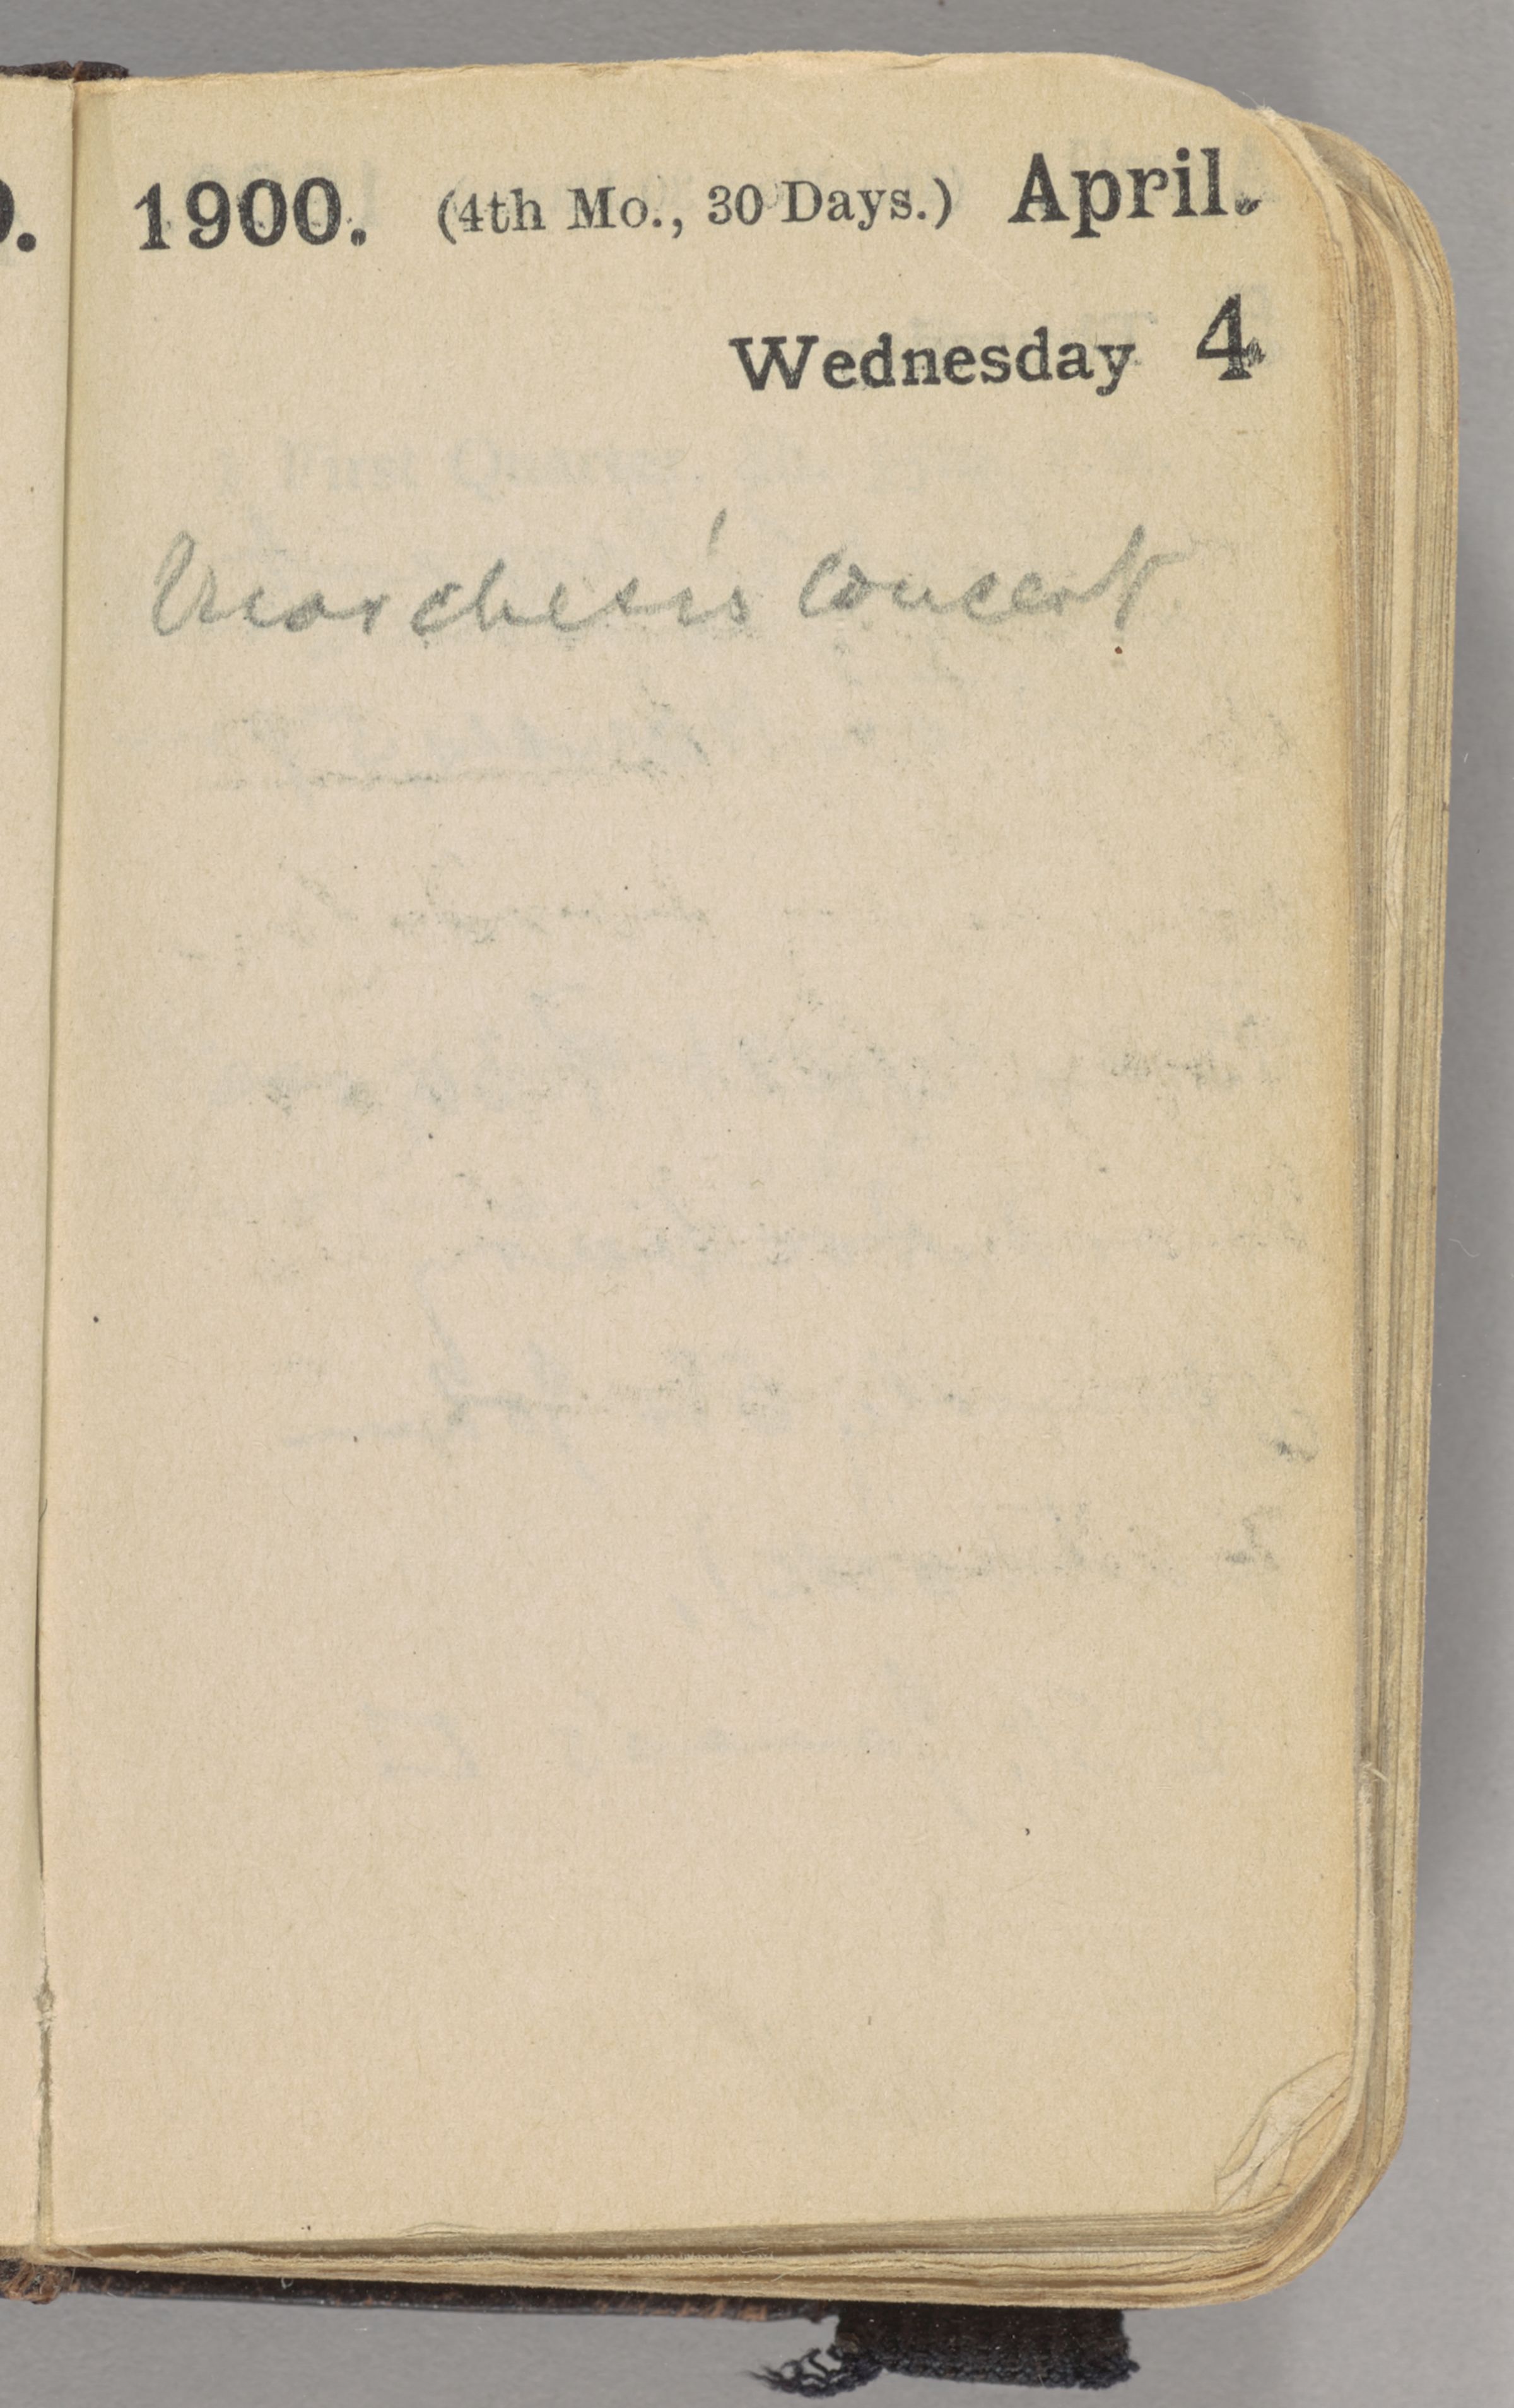 1900. (4th Mo., 30 Days.) April.
Wednesday 4
Marchesi's concert